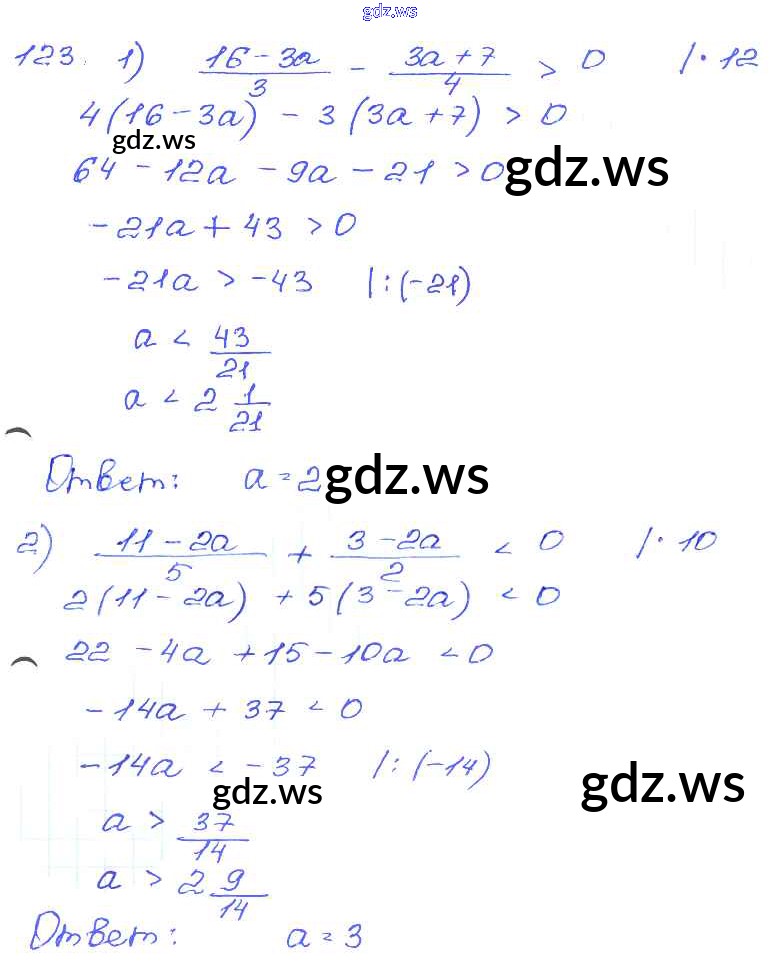 gdz.ws
123. 1) (16 - 3a)/3 - (3a + 7)/4 > 0 | · 12
4(16 - 3a) - 3(3a + 7) > 0
gdz.ws
64 - 12a - 9a - 21 > 0 gdz.ws
-21a + 43 > 0
-21a > -43 | : (-21)
a < 43/21
a < 2 1/21
Ответ: a = 2 gdz.ws
2) (11 - 2a)/5 + (3 - 2a)/2 < 0 | · 10
2(11 - 2a) + 5(3 - 2a) < 0
22 - 4a + 15 - 10a < 0
-14a + 37 < 0
-14a < -37 | : (-14)
gdz.ws gdz.ws
a > 37/14
a > 2 9/14
Ответ: a = 3